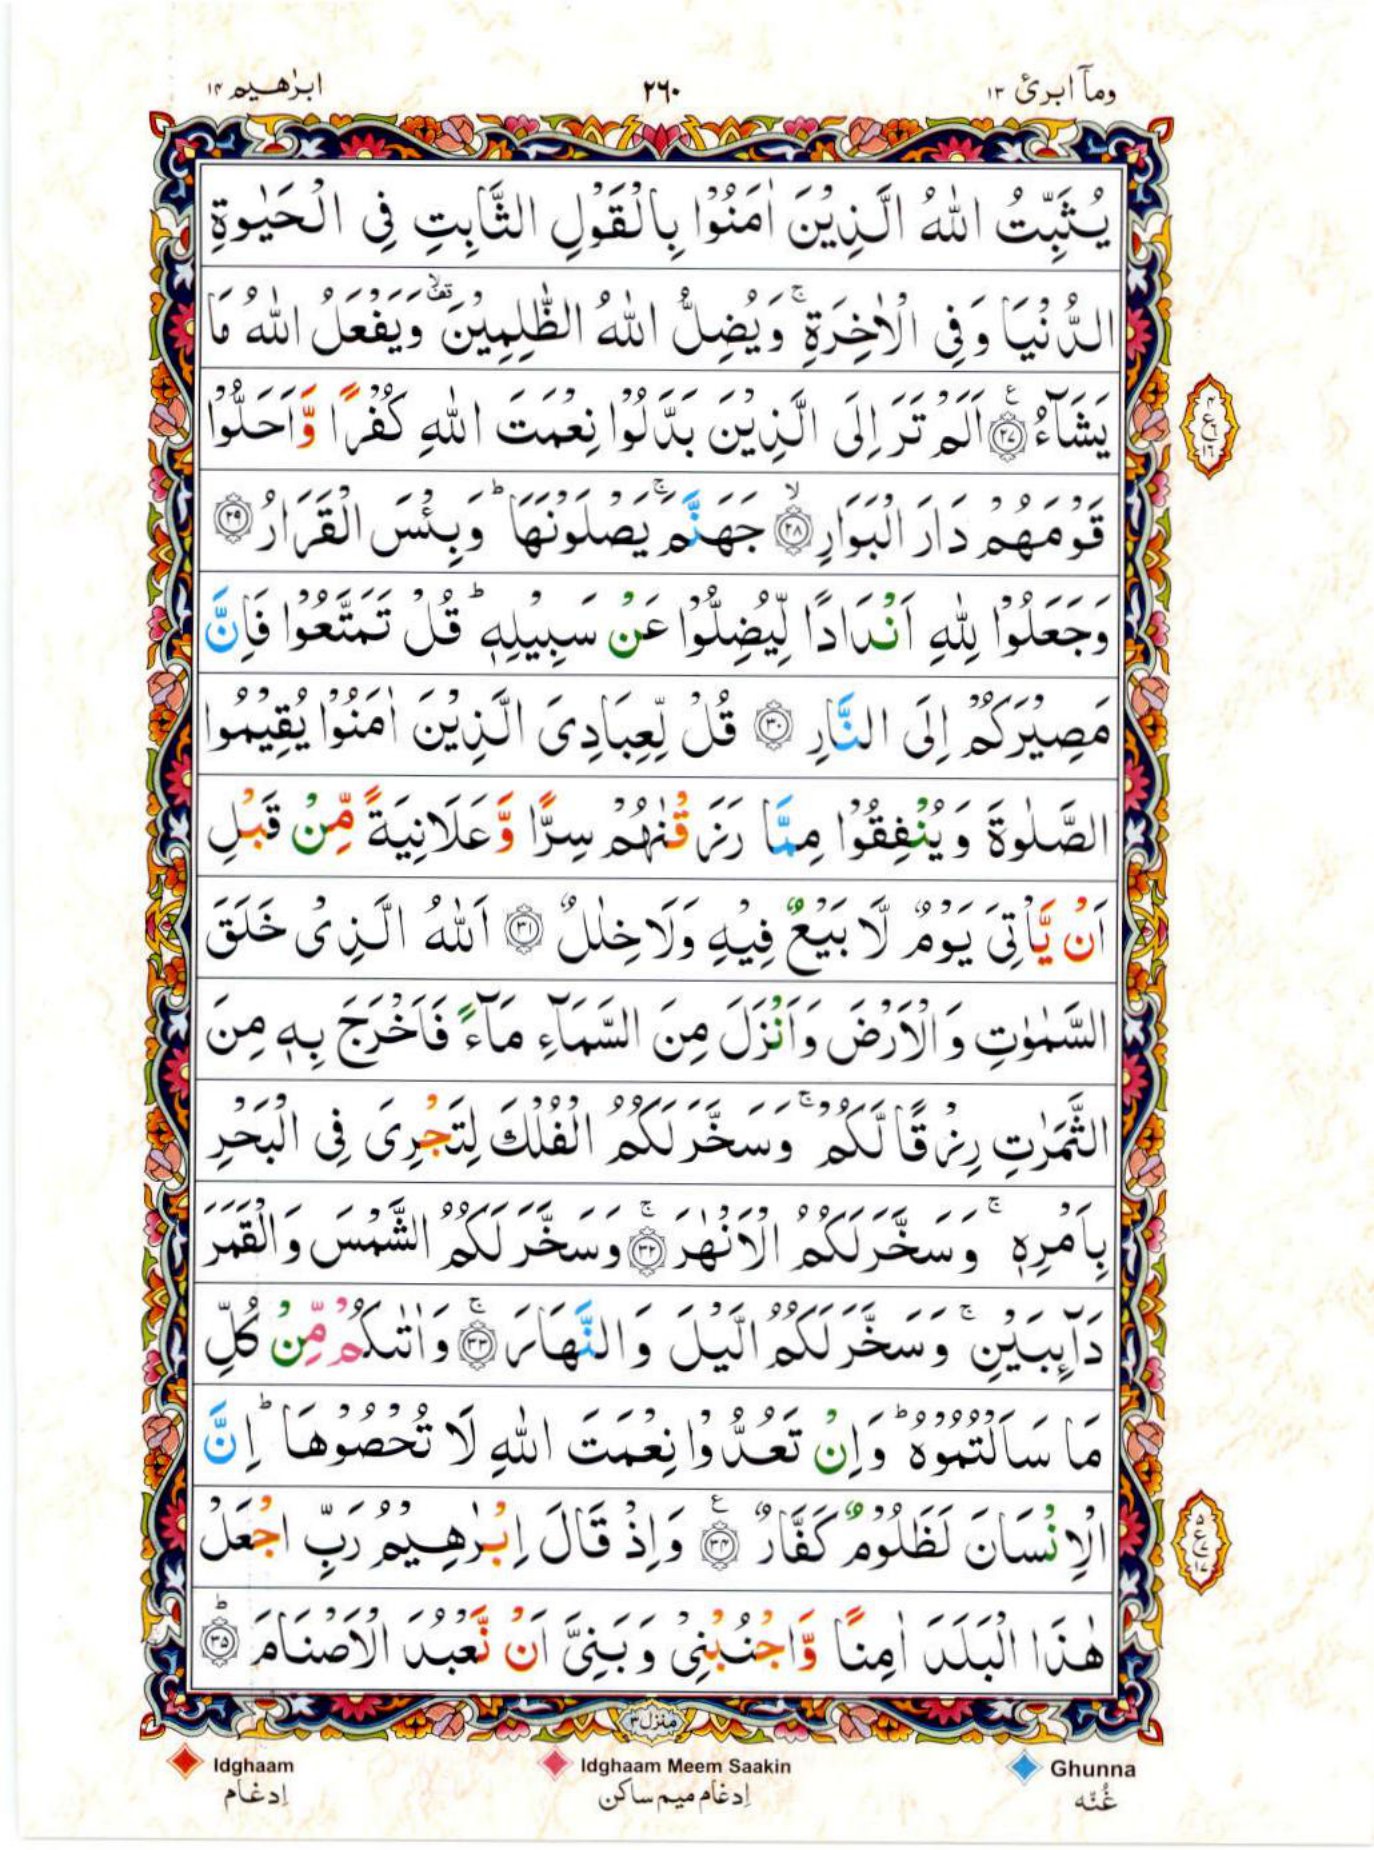 ابرٰهيم ١٤ ٢٦٠ ومآ ابرئ ١٣
يُثَبِّتُ اللّٰهُ الَّذِيْنَ اٰمَنُوْا بِالْقَوْلِ الثَّابِتِ فِى الْحَيٰوةِ
الدُّنْيَا وَفِى الْاٰخِرَةِ ۚ وَيُضِلُّ اللّٰهُ الظّٰلِمِيْنَ ۙ وَيَفْعَلُ اللّٰهُ مَا
يَشَآءُ ﴿٢٧﴾ اَلَمْ تَرَ اِلَى الَّذِيْنَ بَدَّلُوْا نِعْمَتَ اللّٰهِ كُفْرًا وَّاَحَلُّوْا
قَوْمَهُمْ دَارَ الْبَوَارِ ۙ﴿٢٨﴾ جَهَنَّمَ ۚ يَصْلَوْنَهَا ؕ وَبِئْسَ الْقَرَارُ ﴿٢٩﴾
وَجَعَلُوْا لِلّٰهِ اَنْدَادًا لِّيُضِلُّوْا عَنْ سَبِيْلِهٖ ؕ قُلْ تَمَتَّعُوْا فَاِنَّ
مَصِيْرَكُمْ اِلَى النَّارِ ﴿٣٠﴾ قُلْ لِّعِبَادِىَ الَّذِيْنَ اٰمَنُوْا يُقِيْمُوا
الصَّلٰوةَ وَيُنْفِقُوْا مِمَّا رَزَقْنٰهُمْ سِرًّا وَّعَلَانِيَةً مِّنْ قَبْلِ
اَنْ يَّاْتِىَ يَوْمٌ لَّا بَيْعٌ فِيْهِ وَلَا خِلٰلٌ ﴿٣١﴾ اَللّٰهُ الَّذِىْ خَلَقَ
السَّمٰوٰتِ وَالْاَرْضَ وَاَنْزَلَ مِنَ السَّمَآءِ مَآءً فَاَخْرَجَ بِهٖ مِنَ
الثَّمَرٰتِ رِزْقًا لَّكُمْ ۚ وَسَخَّرَ لَكُمُ الْفُلْكَ لِتَجْرِىَ فِى الْبَحْرِ
بِاَمْرِهٖ ۚ وَسَخَّرَ لَكُمُ الْاَنْهٰرَ ۚ﴿٣٢﴾ وَسَخَّرَ لَكُمُ الشَّمْسَ وَالْقَمَرَ
دَآئِبَيْنِ ۚ وَسَخَّرَ لَكُمُ الَّيْلَ وَالنَّهَارَ ۚ﴿٣٣﴾ وَاٰتٰىكُمْ مِّنْ كُلِّ
مَا سَاَلْتُمُوْهُ ؕ وَاِنْ تَعُدُّوْا نِعْمَتَ اللّٰهِ لَا تُحْصُوْهَا ؕ اِنَّ
الْاِنْسَانَ لَظَلُوْمٌ كَفَّارٌ ﴿٣٤﴾ وَاِذْ قَالَ اِبْرٰهِيْمُ رَبِّ اجْعَلْ
هٰذَا الْبَلَدَ اٰمِنًا وَّاجْنُبْنِىْ وَبَنِىَّ اَنْ نَّعْبُدَ الْاَصْنَامَ ؕ﴿٣٥﴾
٤
ع ٦
١٦
٥
ع ٧
١٧
منزل ٣
Idghaam Idghaam Meem Saakin Ghunna
اِدغام اِدغام ميم ساكن غُنّه